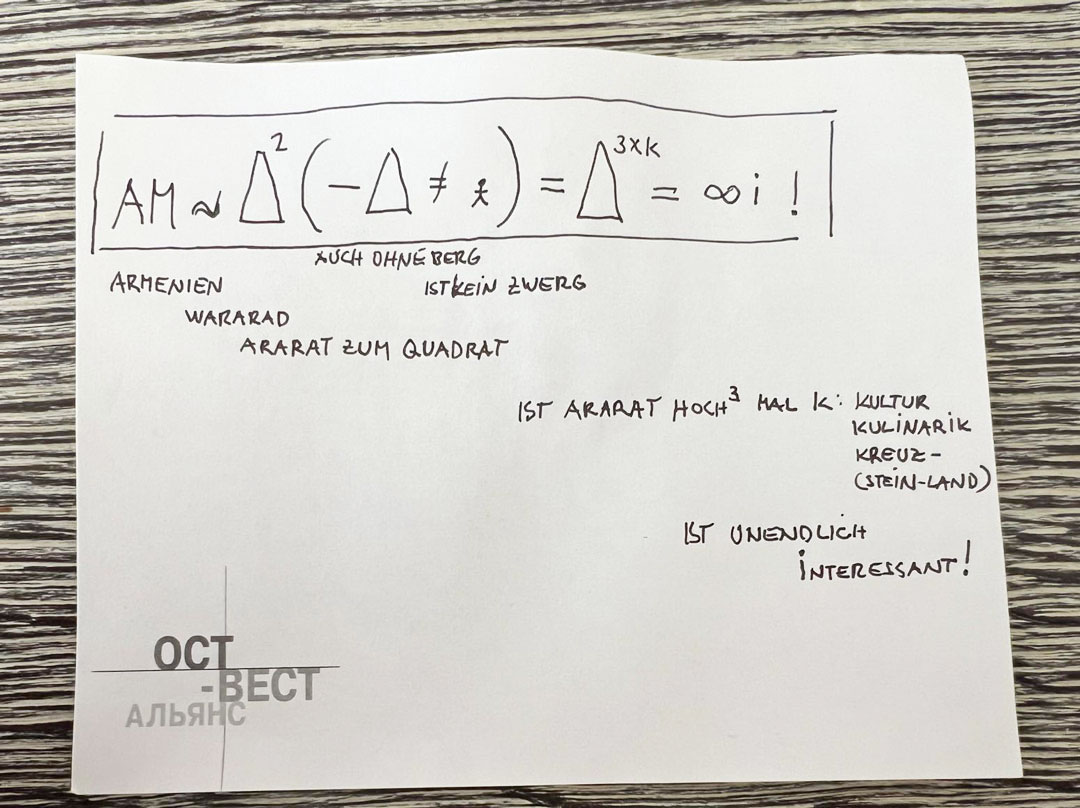 AM ~ Δ² (− Δ ≠ ) = Δ³ˣᴷ = ∞ i !
AUCH OHNE BERG
IST KEIN ZWERG
ARMENIEN
WARARAD
ARARAT ZUM QUADRAT
IST ARARAT HOCH³ MAL K: KULTUR
KULINARIK
KREUZ-
(STEIN-LAND)
IST UNENDLICH
INTERESSANT!
ОСТ
-ВЕСТ
АЛЬЯНС